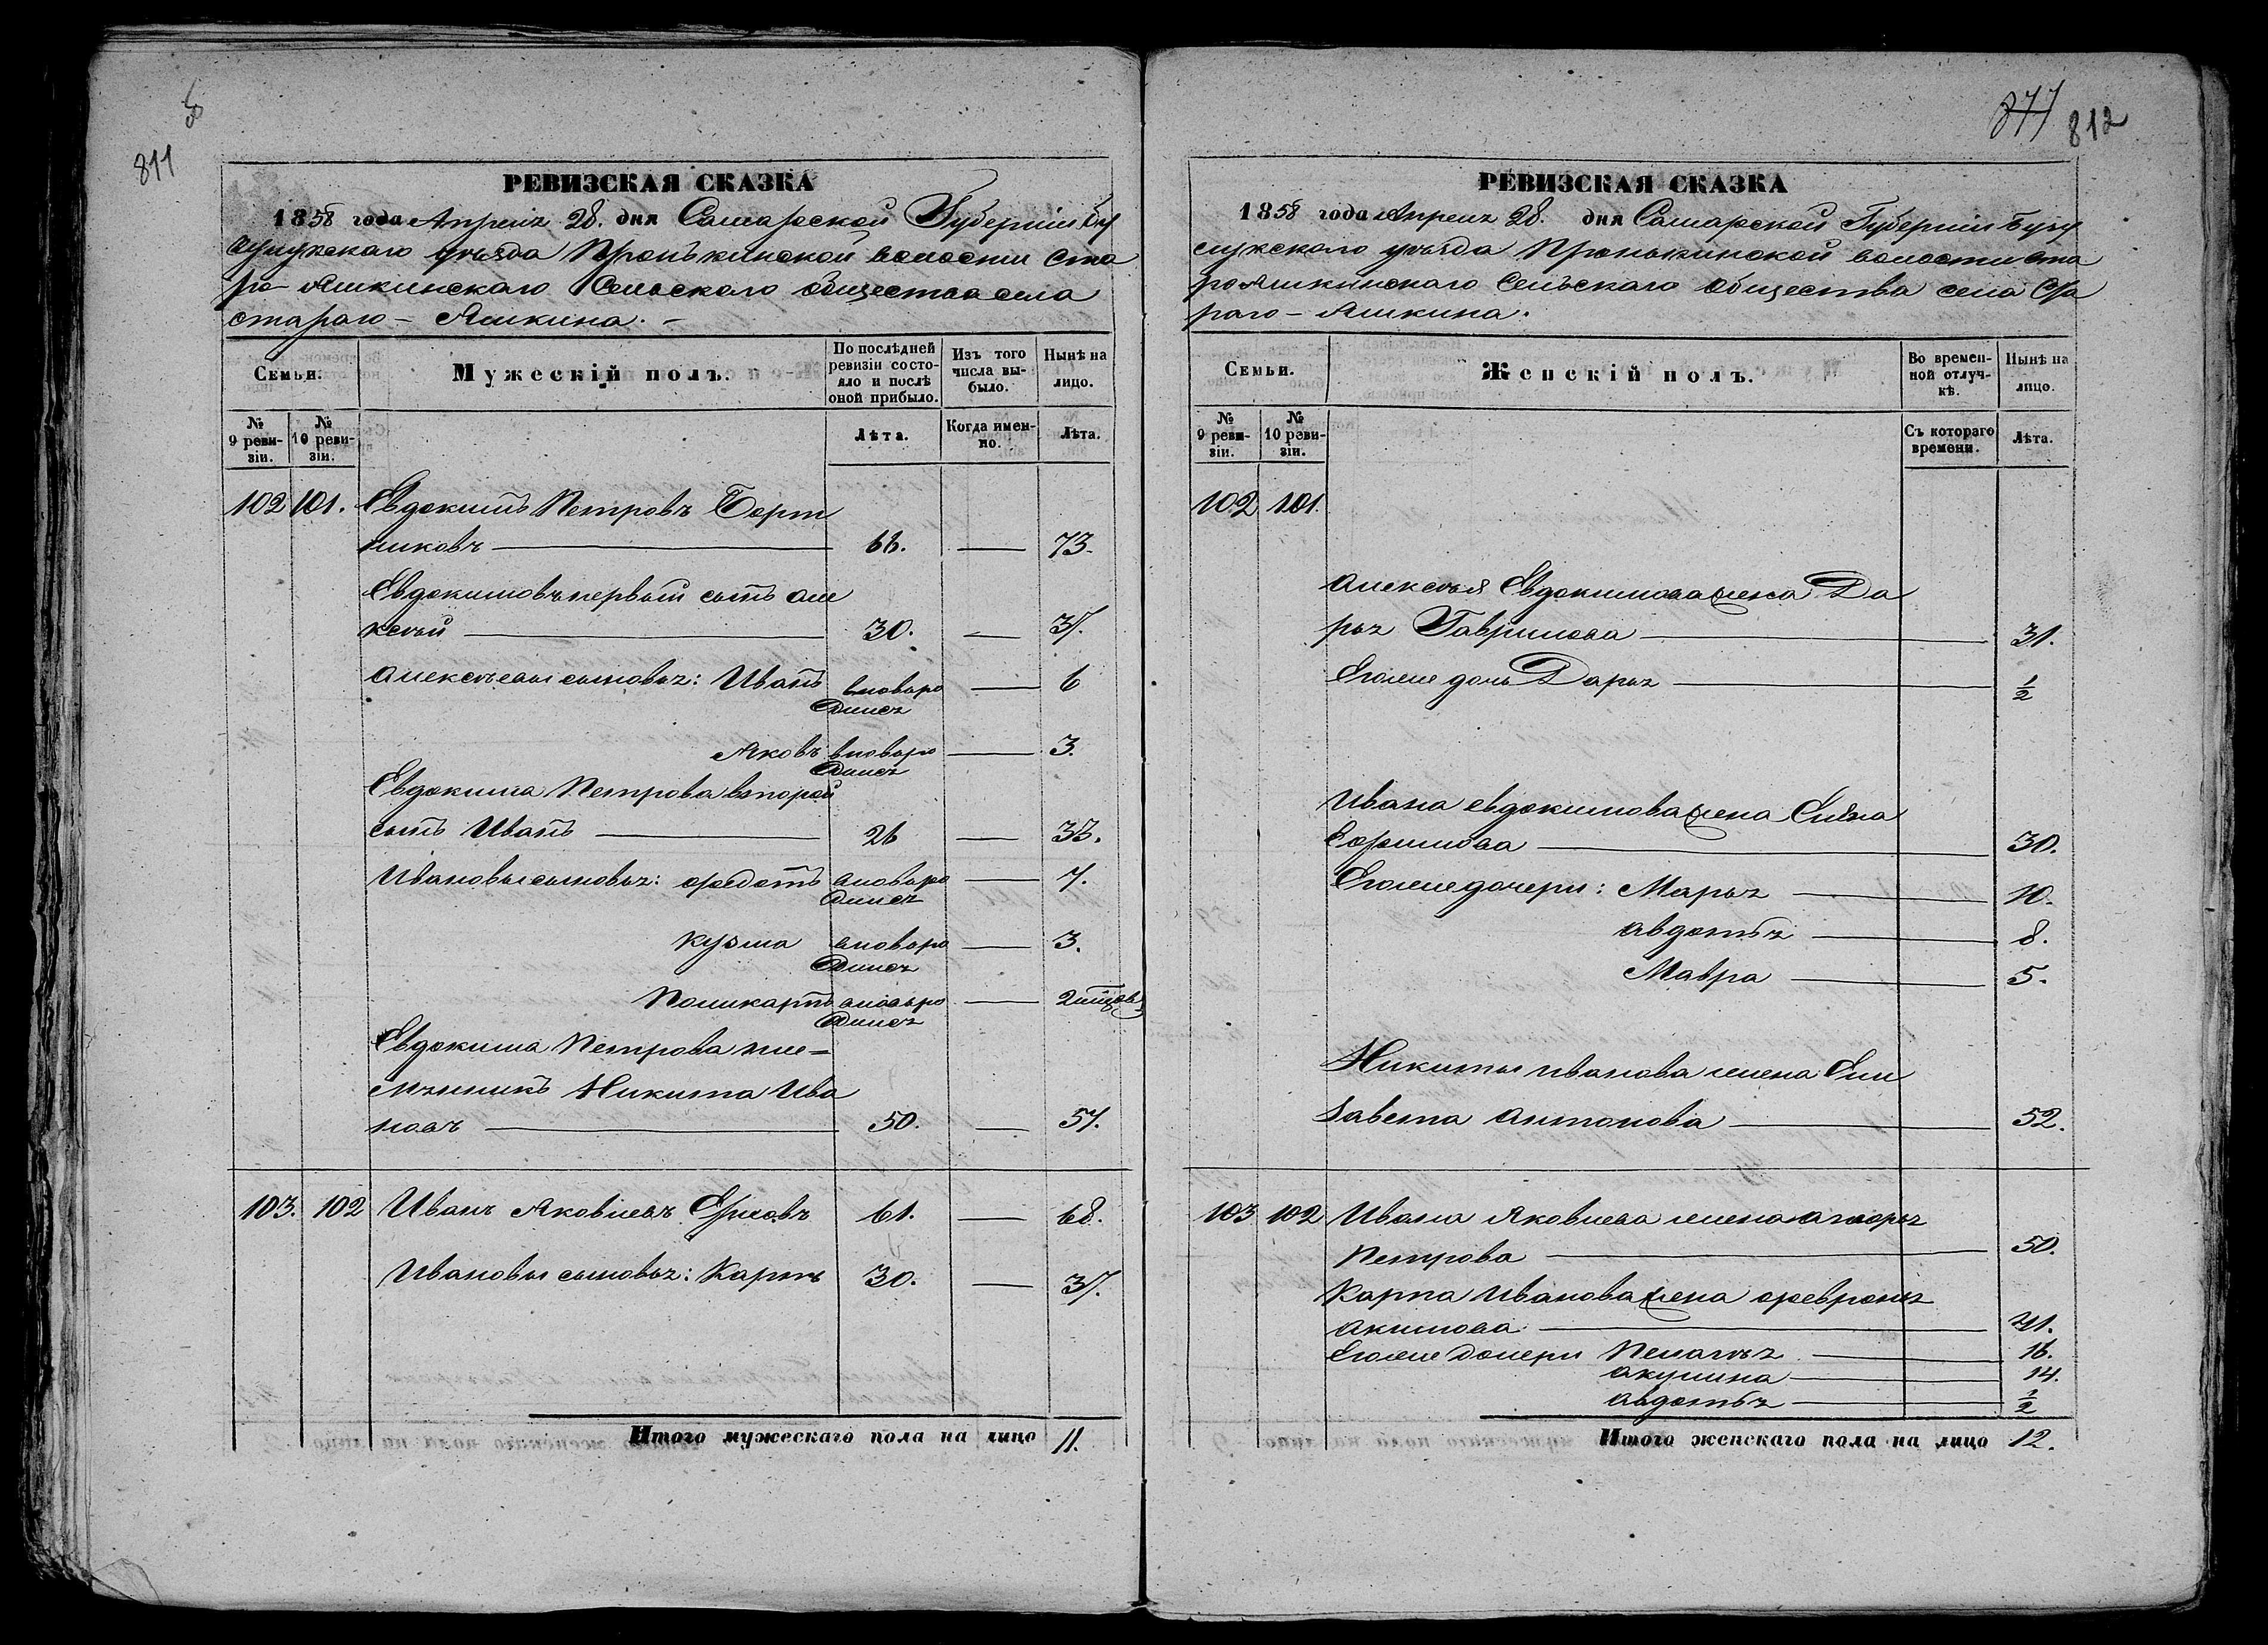 811
РЕВИЗСКАЯ СКАЗКА
1858 года Апреля 28. дня Самарской Губерніи Бу
зулукскаго уѣзда Пронькинской волости Ста
ро-Яшкинскаго Сельскаго общества села
стараго - Яшкина. -
Семьи.
Мужескій полъ.
По послѣдней ревизіи состояло и послѣ оной прибыло.
Изъ того числа выбыло.
Нынѣ на лицо.
№ 9 ревизіи.
№ 10 ревизіи.
Лѣта.
Когда именно.
Лѣта.
102 101. Евдокимъ Петровъ Борт
никовъ 66. 73.
Евдокимовъ первый сынъ Але
ксѣй 30. 37.
Алексѣевы сыновья: Иванъ вновьро 6
дился
Яковъ вновьро 3.
дился
Евдокима Петрова второй
сынъ Иванъ 26 33.
Ивановы сыновья: Федотъ вновьро 7.
дился
Кузма вновьро 3.
дился
Поликарпъ вновьро
дился
Евдокима Петрова пле=
мянникъ Никита Ива
новъ 50. 57.
103. 102 Иванъ Яковлевъ 61. 68.
Ивановы сыновья: Карпъ 30. 37.
Итого мужескаго пола на лицо 11.
877 812
РЕВИЗСКАЯ СКАЗКА
1858 года Апреля 28. дня Самарской Губерніи Бузу
лукского уѣзда Пронькинской волости Ста
рояшкинскаго Сельскаго Общества села Ста
раго - Яшкина.
Семьи.
Женскій полъ.
Во временной отлучкѣ.
Нынѣ на лицо.
№ 9 ревизіи.
№ 10 ревизіи.
Съ котораго времени.
Лѣта.
102 101.
Алексѣя Евдокимова жена Да
рья Гаврилова 31.
Егоже дочь Дарья 1/2
Ивана Евдокимова жена
30.
Егоже дочери: Марья 10.
Авдотья 8.
Мавра 5.
Никиты Иванова жена Ели
завета Антонова 52.
103 102 Ивана Яковлева жена
Петрова 50.
Карпа Иванова жена Февронья
Акимова 41.
Егоже дочери Пелагѣя 16.
Акулина 14.
Авдотья 1/2
Итого женскаго пола на лицо 12.